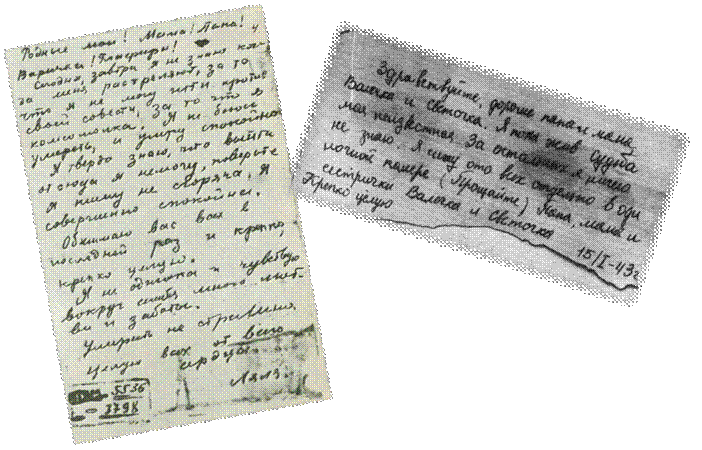 Родные мои! Мама! Папа!
Варичка! Глафира!
Сегодня, завтра я не знаю ког-
да меня расстреляют, за то
что я не могу итти против
своей совести, за то что я
комсомолка. Я не боюсь
умирать и умру спокойно.
Я твердо знаю, что выйти
отсюда я немогу, поверьте
я пишу не сгоряча, я
совершенно спокойна.
Обнимаю вас всех в
последний раз и крепко,
крепко целую.
Я не одинока и чувствую
вокруг себя много люб-
ви и заботы.
Умирать не страшно
целую всех от всего
сердца.
Ляля.
5536
3798
Здравствуйте, дорогие папа и мама,
Валочка и Светочка. Я пока жив. Судьба
моя неизвестная. За остальных я ничего
не знаю. Я сижу ото всех отдельно в
ночной камере (Прощайте) Папа, мама и
сестрички Валочка и Светочка
Крепко целую
15/I-43г